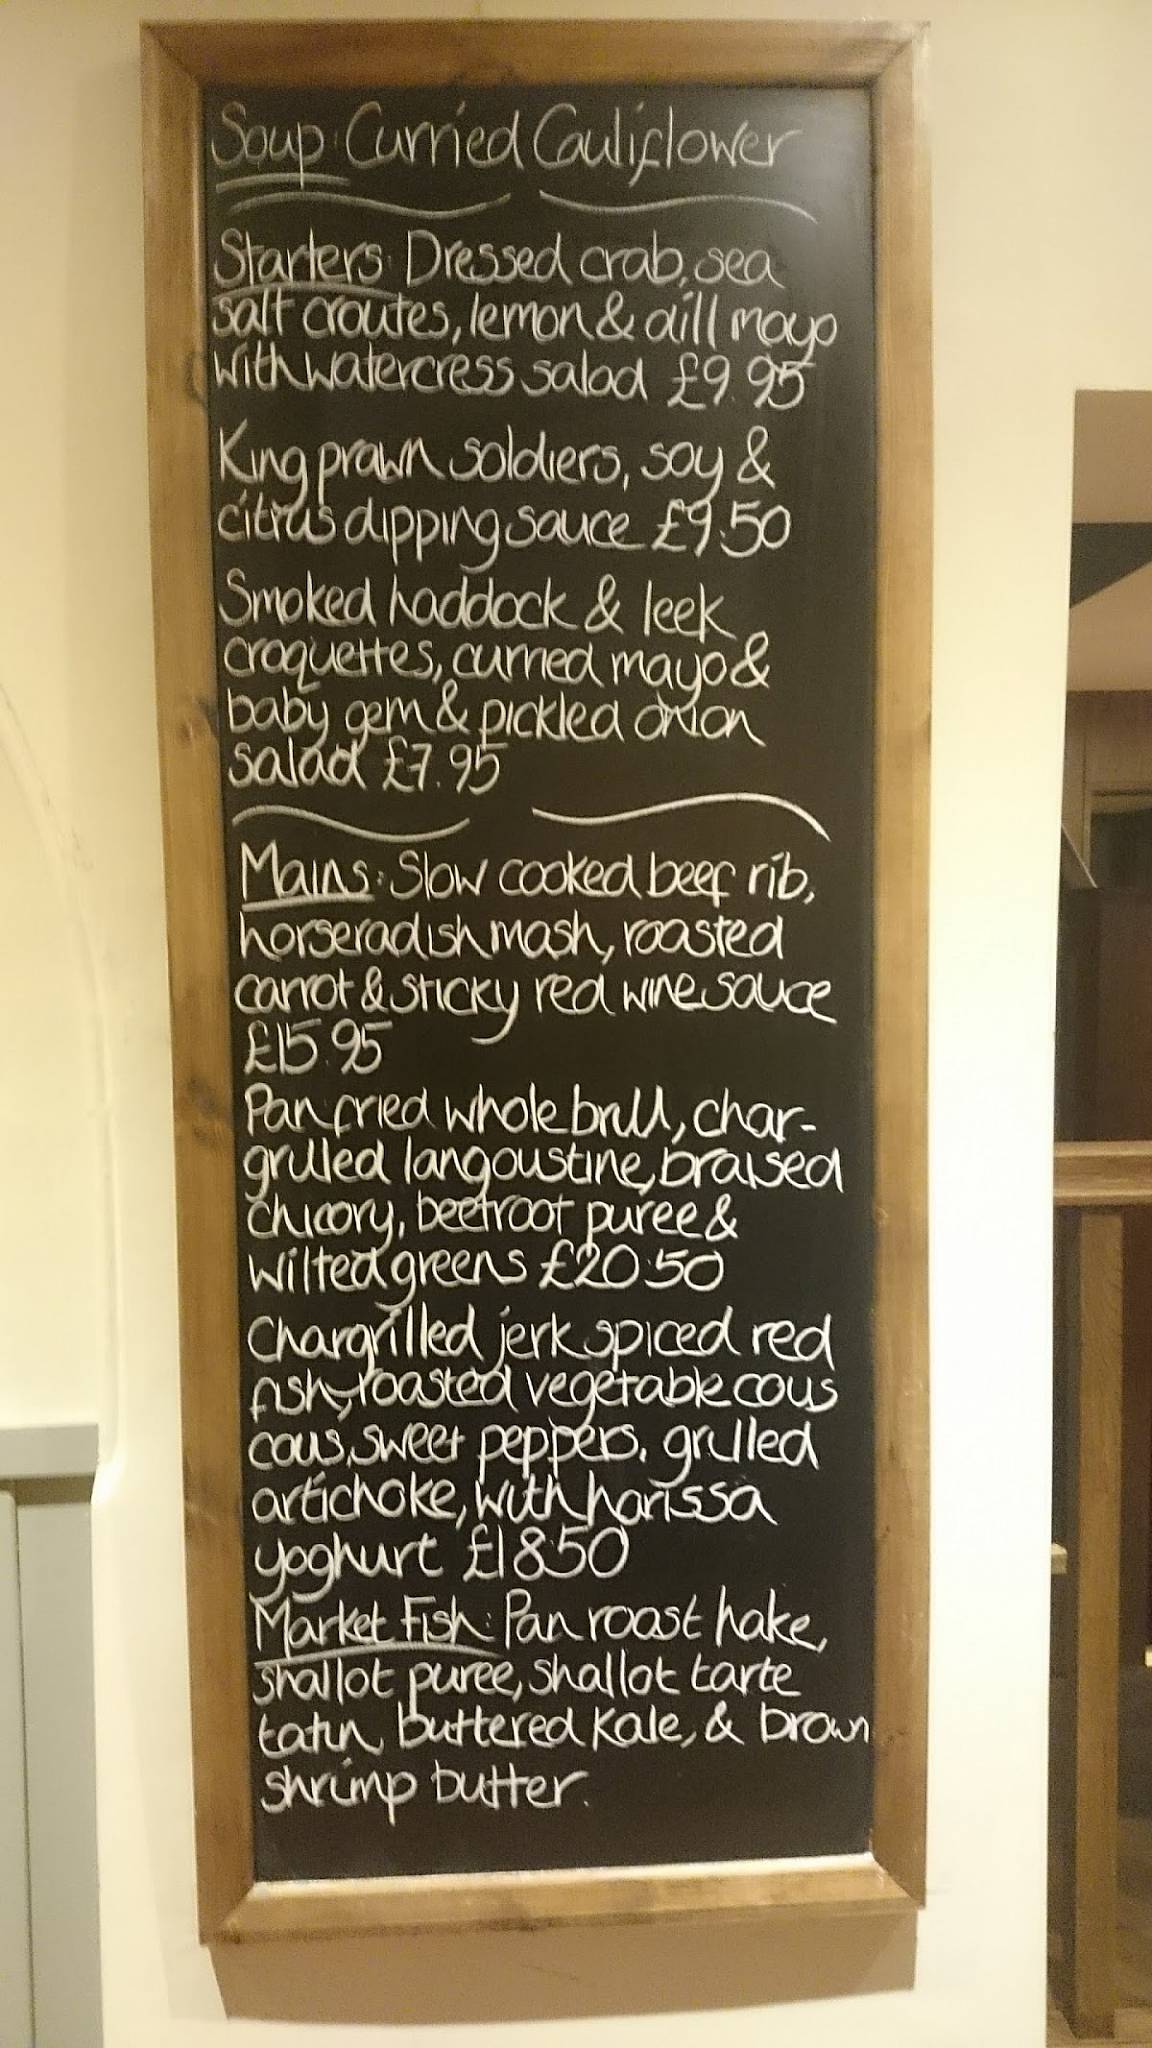 Soup: Curried Cauliflower
Starters: Dressed crab, sea
salt croutes, lemon & dill mayo
with watercress salad £9.95
King prawn soldiers, soy &
citrus dipping sauce £9.50
Smoked haddock & leek
croquettes, curried mayo &
baby gem & pickled onion
salad £7.95
Mains: Slow cooked beef rib,
horseradish mash, roasted
carrot & sticky red wine sauce
£15.95
Pan fried whole brill, char-
grilled langoustine, braised
chicory, beetroot puree &
wilted greens £20.50
Chargrilled jerk spiced red
fish, roasted vegetable cous
cous, sweet peppers, grilled
artichoke, with harissa
yoghurt £18.50
Market Fish: Pan roast hake,
shallot puree, shallot tarte
tatin, buttered kale, & brown
shrimp butter.